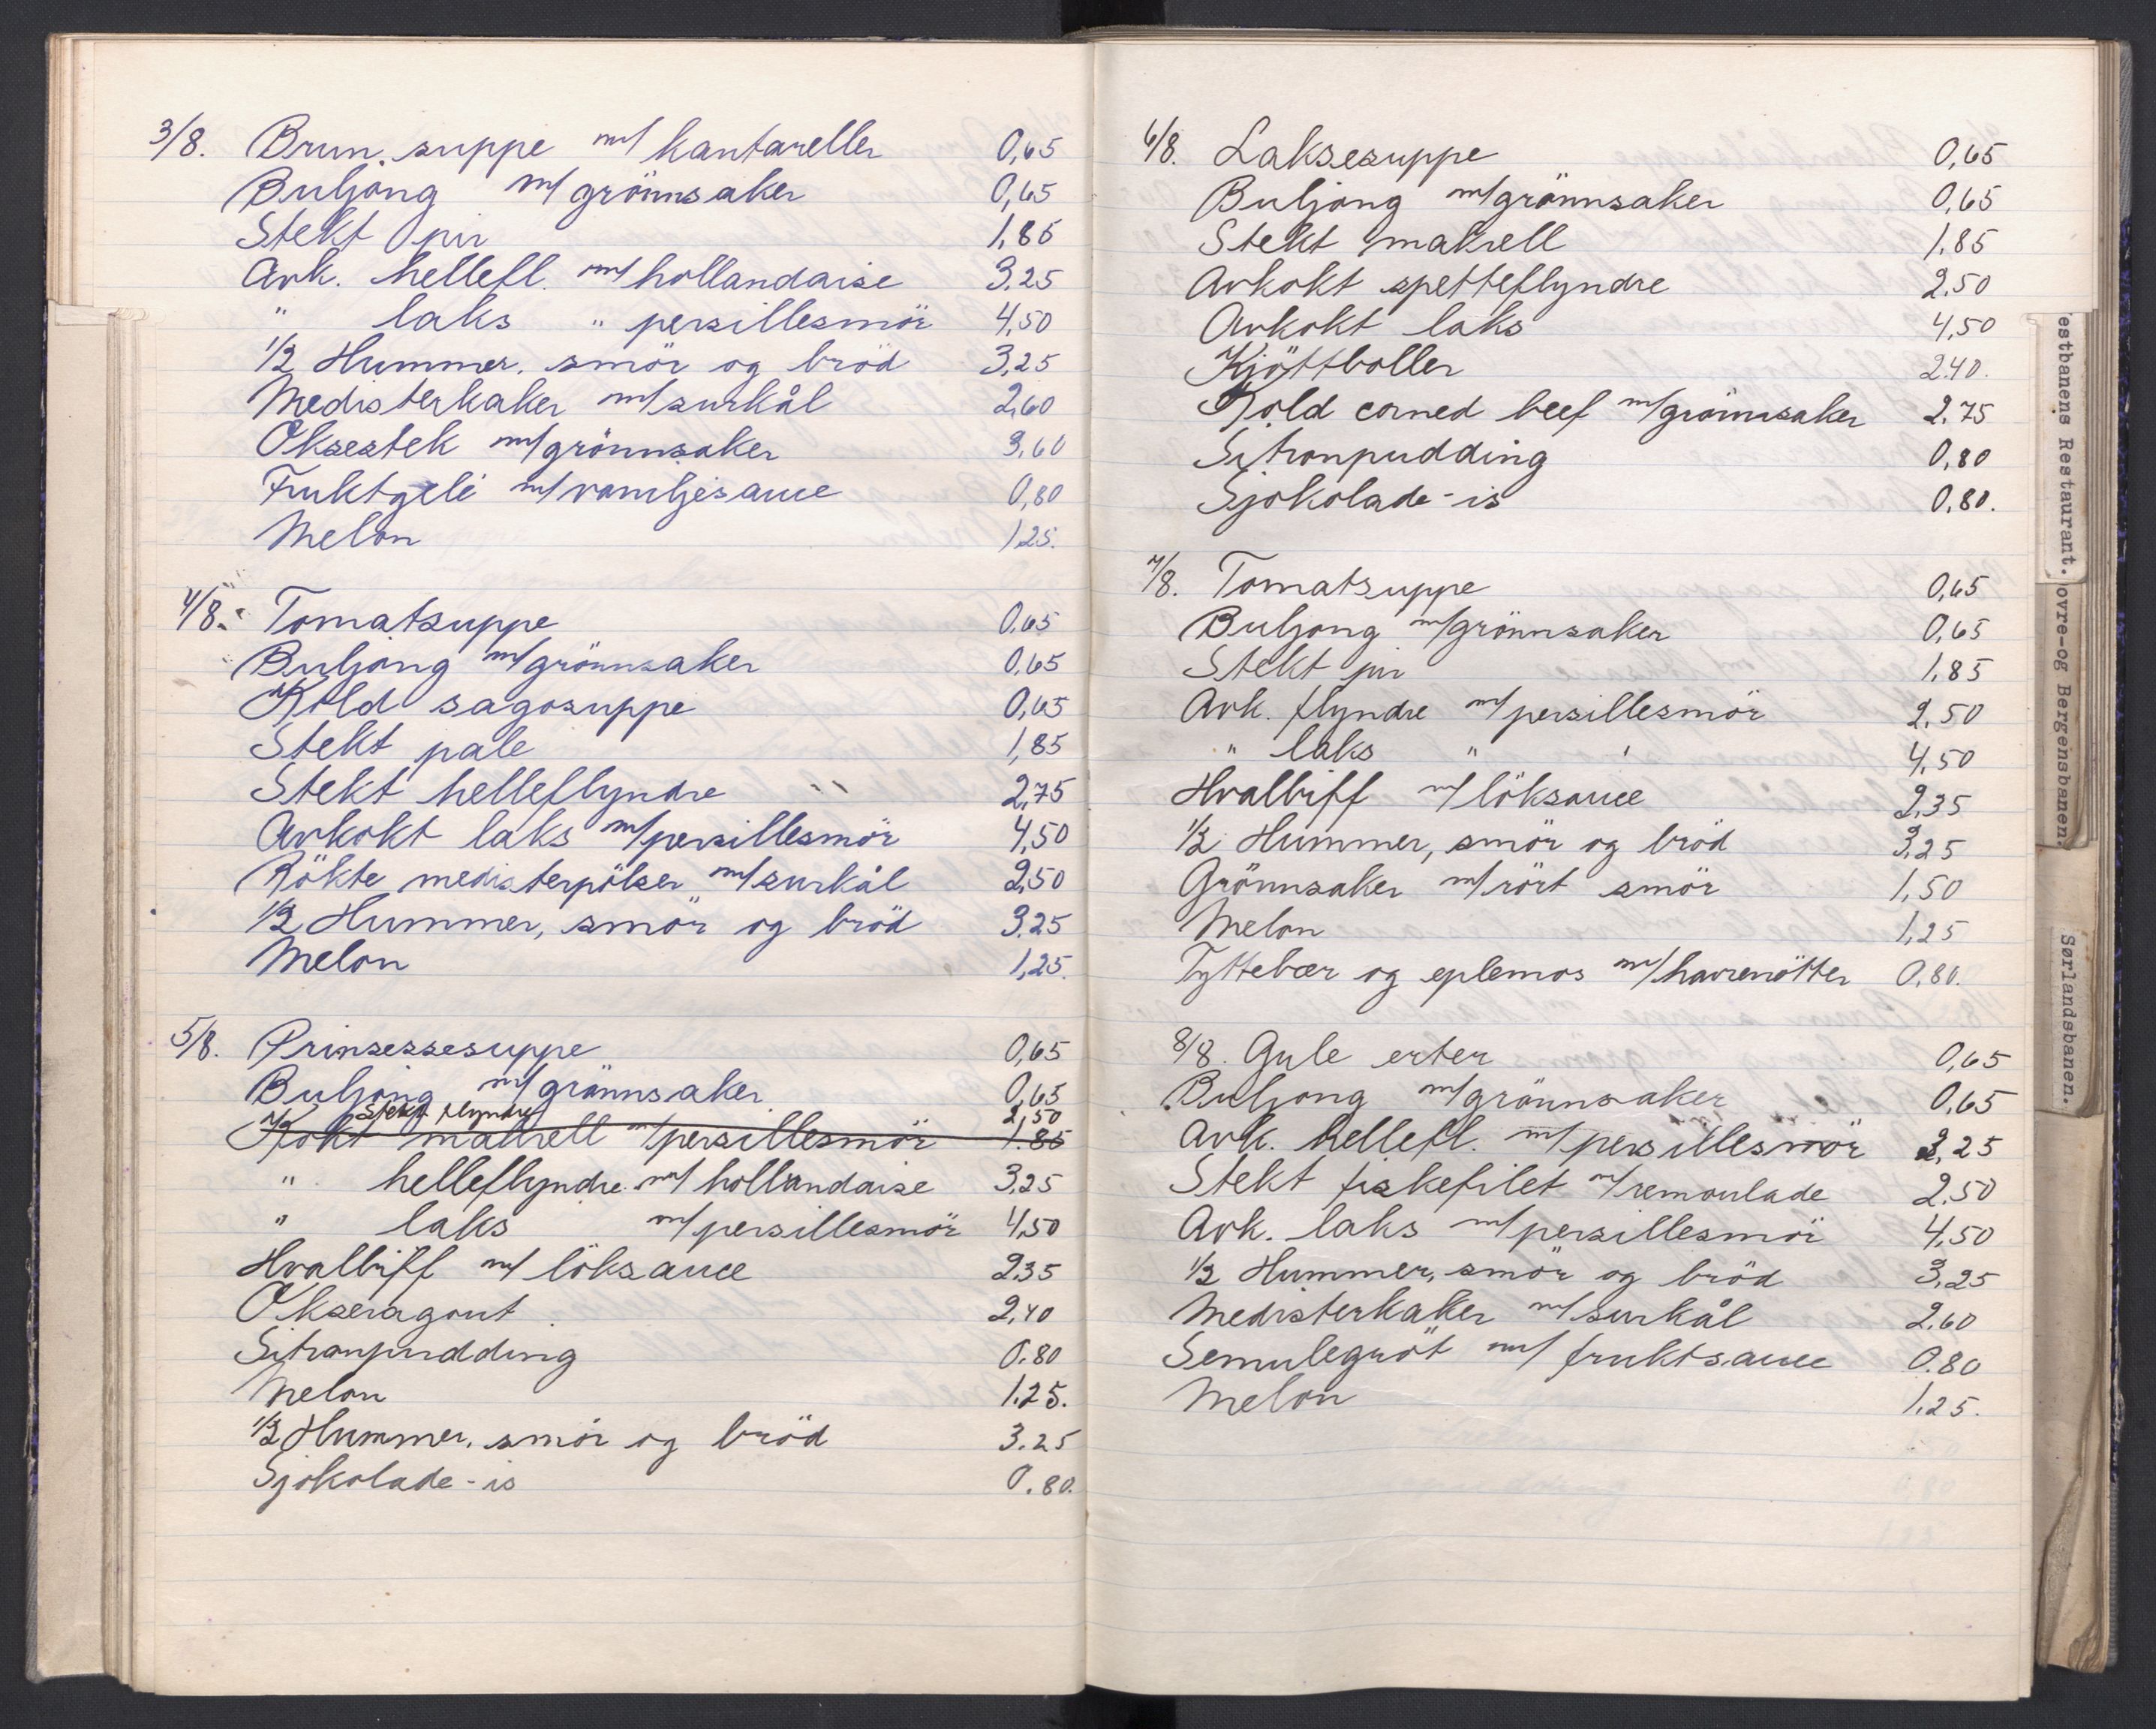 3/8. Brun. suppe m/ kantareller 0,65
Buljong m/ grönnsaker 0,65
Stekt pir 1,85
Avk. hellefl. m/ hollandaise 3,25
" laks " persillesmör 4,50
1/2 Hummer, smör og bröd 3,25
Medisterkaker m/ surkål 2,60
Oksestek m/ grönnsaker 3,60
Fruktgelé m/ vaniljesauce 0,80
Melon 1,25.
4/8. Tomatsuppe 0,65
Buljong m/ grönnsaker 0,65
Kold sagosuppe 0,65
Stekt pale 1,85
Stekt helleflyndre 2,75
Avkokt laks m/ persillesmör 4,50
Rökte medisterpölser m/ surkål 2,50
1/2 Hummer, smör og bröd 3,25
Melon 1,25.
5/8. Prinsessesuppe 0,65
Buljong m/ grönnsaker 0,65
Stekt flyndre 2,50
Kokt makrell m/ persillesmör 1.85
" helleflyndre m/ hollandaise 3,25
" laks m/ persillesmör 4,50
Hvalbiff m/ löksauce 2,35
Okseragout 2,40
Sitronpudding 0.80
Melon 1.25.
1/2 Hummer, smör og bröd 3.25
Sjokolade-is 0.80.
6/8. Laksesuppe 0,65
Buljong m/ grönnsaker 0,65
Stekt makrell 1.85
Avkokt spetteflyndre 2,50
Avkokt laks 4,50
Kjöttboller 2.40.
Kold corned beef m/ grönnsaker 2.75
Sitronpudding 0,80
Sjokolade-is 0,80.
7/8. Tomatsuppe 0,65
Buljong m/ grönnsaker 0,65
Stekt pir 1,85
Avk. flyndre m/ persillesmör 2,50
" laks " " 4,50
Hvalbiff m/ löksauce 2,35
1/2 Hummer, smör og bröd 3,25
Grönnsaker m/ rört smör 1,50
Melon 1,25
Tyttebær og eplemos m/ havrenötter 0,80.
8/8. Gule erter 0,65
Buljong m/ grönnsaker 0,65
Avk. hellefl. m/ persillesmör 3,25
Stekt fiskefilet m/ remoulade 2.50
Avk. laks m/ persillesmör 4,50
1/2 Hummer, smör og bröd 3,25
Medisterkaker m/ surkål 2.60
Semulegröt m/ fruktsauce 0.80
Melon 1.25.
estbanens Restaurant.
ovre-og Bergensbanen.
Sørlandsbanen.